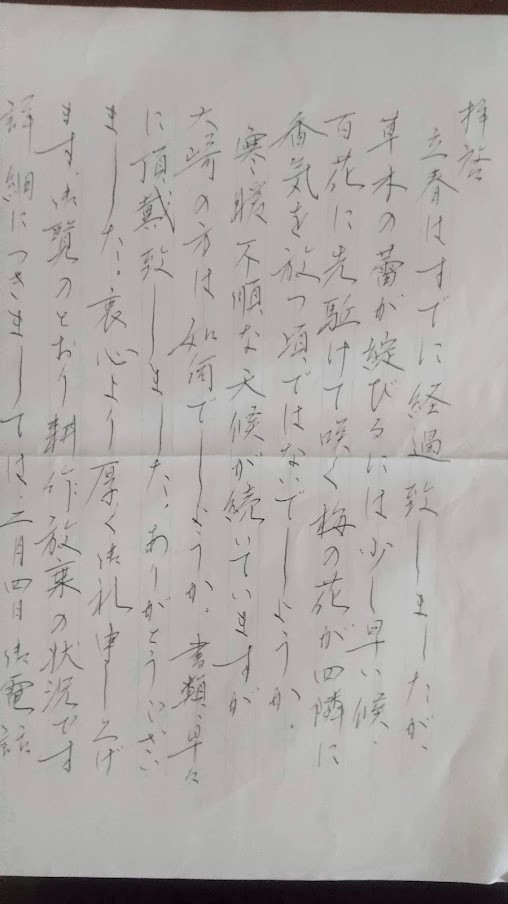 拝啓
立春はすでに経過致しましたが、
草木の蕾が綻びるには少し早い候、
百花に先駆けて咲く梅の花が四隣に
香気を放つ頃ではないでしょうか。
寒暖不順な天候が続いていますが
大崎の方は如何でしょうか。書類、早々
に頂戴致しました。ありがとうござい
ました。衷心より厚く御礼申し上げ
ます。御覧のとおり耕作放棄の状況です
詳細につきましては、二月四日御電話